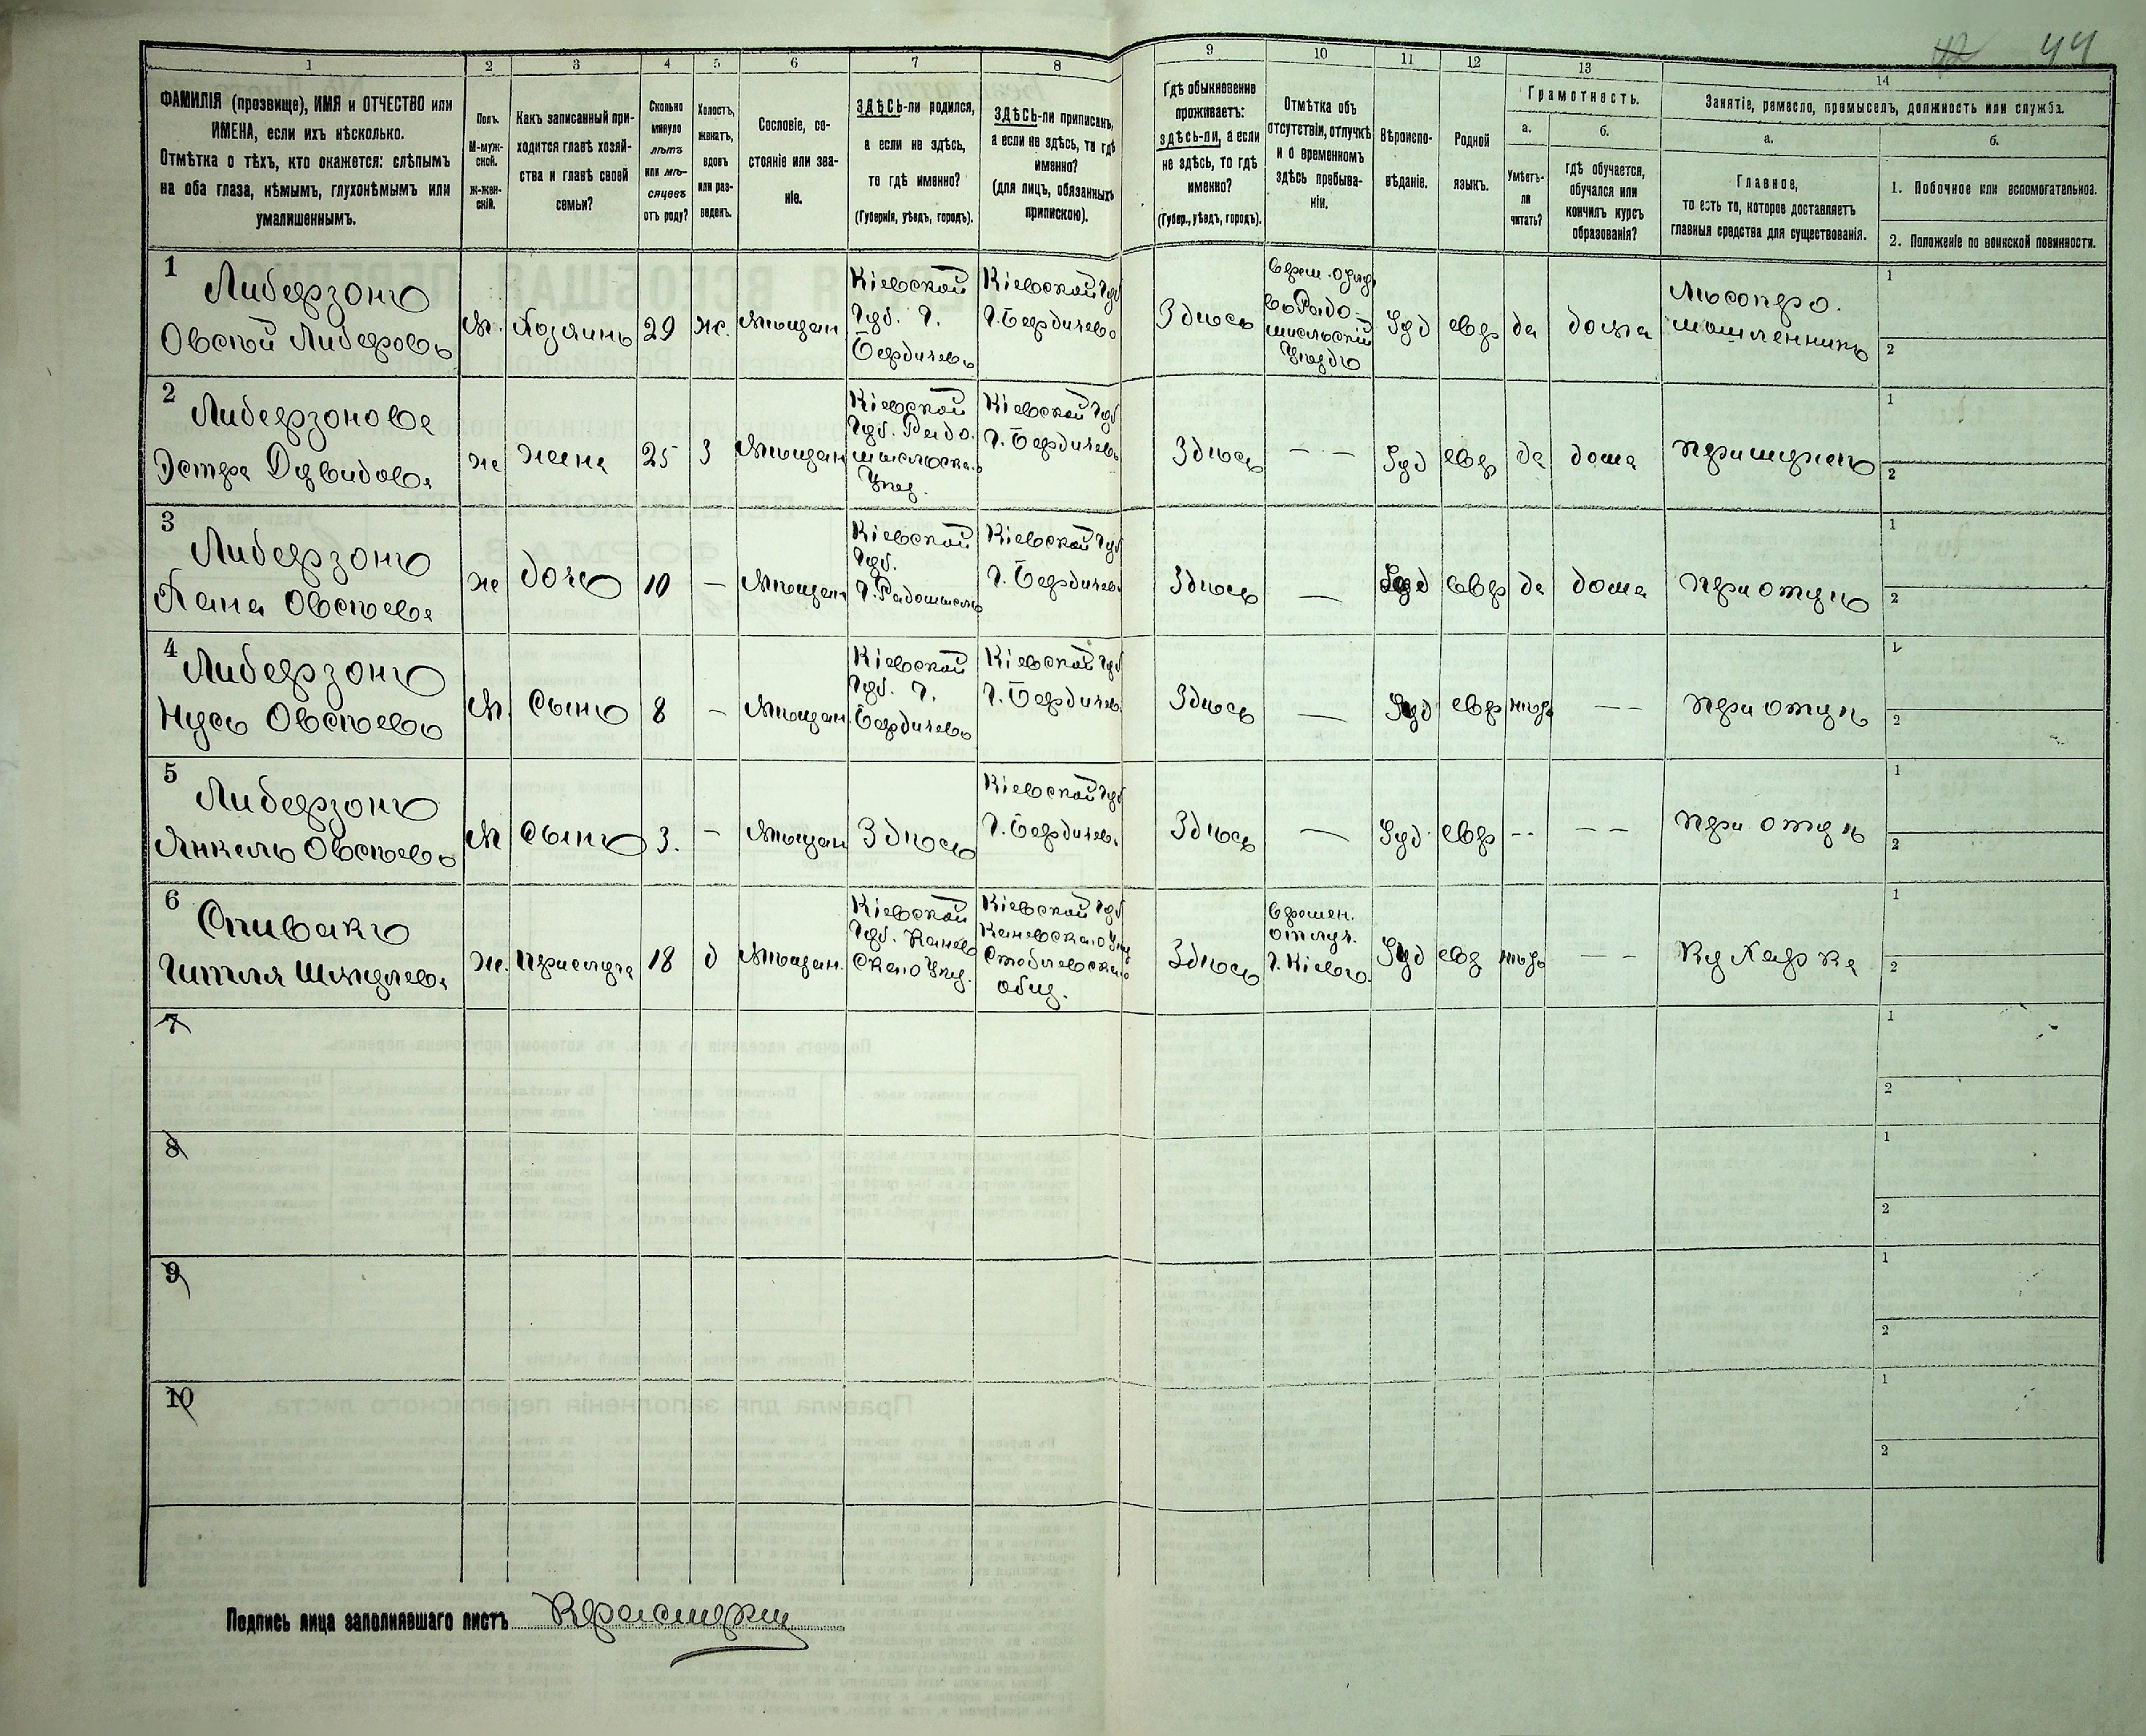 42 44
1 2 3 4 5 6 7 8 9 10 11 12 13 14
ФАМИЛІЯ (прозвище), ИМЯ и ОТЧЕСТВО или
ИМЕНА, если ихъ нѣсколько.
Отмѣтка о тѣхъ, кто окажется: слѣпымъ
на оба глаза, нѣмымъ, глухонѣмымъ или
умалишеннымъ.
Полъ.
М-муж-
ской.
Ж-жен-
скій.
Какъ записанный при-
ходится главѣ хозяй-
ства и главѣ своей
семьи?
Сколько
минуло
лѣтъ
или мѣ-
сяцевъ
отъ роду?
Холостъ,
женатъ,
вдовъ
или раз-
веденъ.
Сословіе, со-
стояніе или зва-
ніе.
ЗДѢСЬ-ли родился,
а если не здѣсь,
то гдѣ именно?
(Губернія, уѣздъ, городъ).
ЗДѢСЬ-ли приписанъ,
а если не здѣсь, то гдѣ
именно?
(для лицъ, обязанныхъ
припискою).
Гдѣ обыкновенно
проживаетъ:
здѣсь-ли, а если
не здѣсь, то гдѣ
именно?
(Губер., уѣздъ, городъ).
Отмѣтка объ
отсутствіи, отлучкѣ
и о временномъ
здѣсь пребыва-
ніи.
Вѣроиспо-
вѣданіе.
Родной
языкъ.
Грамотность.
а.
Умѣетъ-
ли
читать?
б.
гдѣ обучается,
обучался или
кончилъ курсъ
образованія?
Занятіе, ремесло, промыселъ, должность или служба.
а.
Главное,
то есть то, которое доставляетъ
главныя средства для существованія.
б.
1. Побочное или вспомогательноа.
2. Положеніе по воинской повинности.
1
Либерзонъ
Овсѣй Либеровъ
М.
Хозяинъ
29
ж.
Мѣщан
Кіевской
Губ. Г.
Бердичевъ
Кіевской Губ
Г. Бердичевъ
Здѣсь
въ Радо-
мысльскій
Уѣздъ
Іуд
евр
да
дома
Лѣсопро.
мышленникъ
1
2
2
Либерзонова
Эстра Дувидова
же
жена
25
З
Мѣщан
Кіевской
Губ. Радо.
мысльска.
Уѣз.
Кіевской Губ
Г. Бердичевъ
Здѣсь
— —
Іуд
евр
да
дома
при мужѣ
1
2
3
Либерзонъ
Хана Овсѣева
же
дочь
10
—
Мѣщан
Кіевской
Губ.
Г. Радомысль
Кіевской Губ
Г. Бердичев.
Здѣсь
—
Іуд
евр
да
дома
при отцѣ
1
2
4
Либерзонъ
Нусь Овсѣевъ
М.
сынъ
8
—
Мѣщан
Кіевской
Губ. Г.
Бердичевъ
Кіевской Губ
Г. Бердичев.
Здѣсь
—
Іуд
евр
нѣтъ
— —
при отцѣ
1
2
5
Либерзонъ
Янкель Овсѣевъ
М
сынъ
3.
—
Мѣщан
Здѣсь
Кіевской Губ
Г. Бердичев.
Здѣсь
—
Іуд
евр
--
— —
при отцѣ
1
2
6
Спивакъ
Гитля Шмулева
ж.
прислуга
18
д
Мѣщан.
Кіевской
Губ. Канев
скаго Уѣз.
Кіевской Губ
Каневскаго Уѣз
общ.
Здѣсь
времен.
отлуч.
Г. Кіевъ.
Іуд
евр
нѣтъ
— —
кухарка
1
2
7
1
2
8
1
2
9
1
2
10
1
2
Подпись лица заполнявшаго листъ